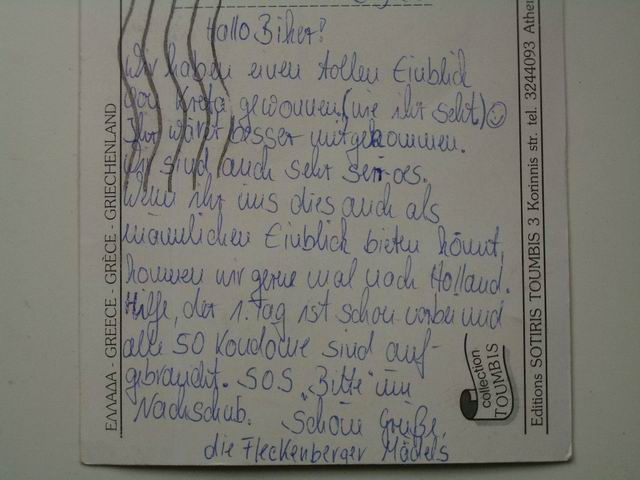 Hallo Biker!
Wir haben einen tollen Einblick
von Kreta gewonnen (wie ihr seht) ☺
Ihr wäret besser mitgekommen.
Wir sind auch sehr seriös.
Wenn ihr uns dies auch als
männlichen Einblick bieten könnt,
kommen wir gerne mal nach Holland.
Hilfe, der 1. Tag ist schon vorbei und
alle 50 Kondome sind auf-
gebraucht. SOS „Bitte" um
Nachschub. Schöne Grüße,
die Fleckenberger Mädels
ΕΛΛΑΔΑ - GREECE - GRÈCE - GRIECHENLAND
collection
TOUMBIS
Editions SOTIRIS TOUMBIS 3 Korinnis str. tel. 3244093 Athe